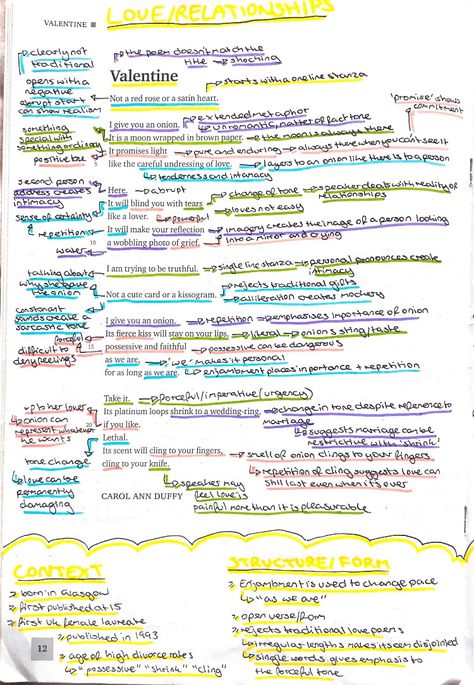 LOVE/RELATIONSHIPS
VALENTINE
clearly not
traditional
opens with a
negative
abrupt start
can show realism
the poem doesn't match the
title → shocking
Valentine
starts with a one line stanza
Not a red rose or a satin heart.
'promise' shows
commitment
something
special with
something ordinary
positive but
extended metaphor
I give you an onion.
unromantic, matter of fact tone
It is a moon wrapped in brown paper. → the moon is always there
It promises light → pure and enduring → always there when you can't see it
like the careful undressing of love. → layers to an onion like there is to a person
tenderness and intimacy
second person
address creates
intimacy
sense of certainty
repetition
water
Here. → abrupt
change of tone → speaker deals with reality of
relationships
It will blind you with tears
loves not easy
like a lover. powerful
It will make your reflection → imagery creates the image of a person looking
into a mirror and crying
10 a wobbling photo of grief.
talking about
why she gave
the onion
I am trying to be truthful. → single line stanza → personal pronouns create
intimacy
rejects traditional gifts
Not a cute card or a kissogram.
alliteration creates mockery
constonant
sounds create a
sarcastic tone
I give you an onion. → repetition → emphasises importance of onion
forceful
Its fierce kiss will stay on your lips, → literal → onion's sting/taste
difficult to
deny feelings
15 possessive and faithful → possessive can be dangerous
as we are, → 'we' makes it personal
for as long as we are. → enjambment places importance + repetition
Take it. → forceful/imperative (urgency)
up to her lover
onion can
represent whatever
he wants
Its platinum loops shrink to a wedding-ring, → change in tone despite reference to
marriage
20 if you like.
suggests marriage can be
restrictive with 'shrink'
Lethal.
tone change
Its scent will cling to your fingers, → smell of onion clings to your fingers
cling to your knife.
repetition of cling suggests love can
still last even when it's over
love can be
permanently
damaging
speaker may
feel love is
painful more than it is pleasurable
CAROL ANN DUFFY
CONTEXT
» born in Glasgow
» first published at 15
» first UK female laureate
» published in 1993
» age of high divorce rates
↳ "possessive" "shrink" "cling"
STRUCTURE/FORM
» Enjambment is used to change pace
↳ "as we are"
» open verse/form
» rejects traditional love poems
» irregular lengths makes it seem disjointed
» single words gives emphasis to
the forceful tone
12